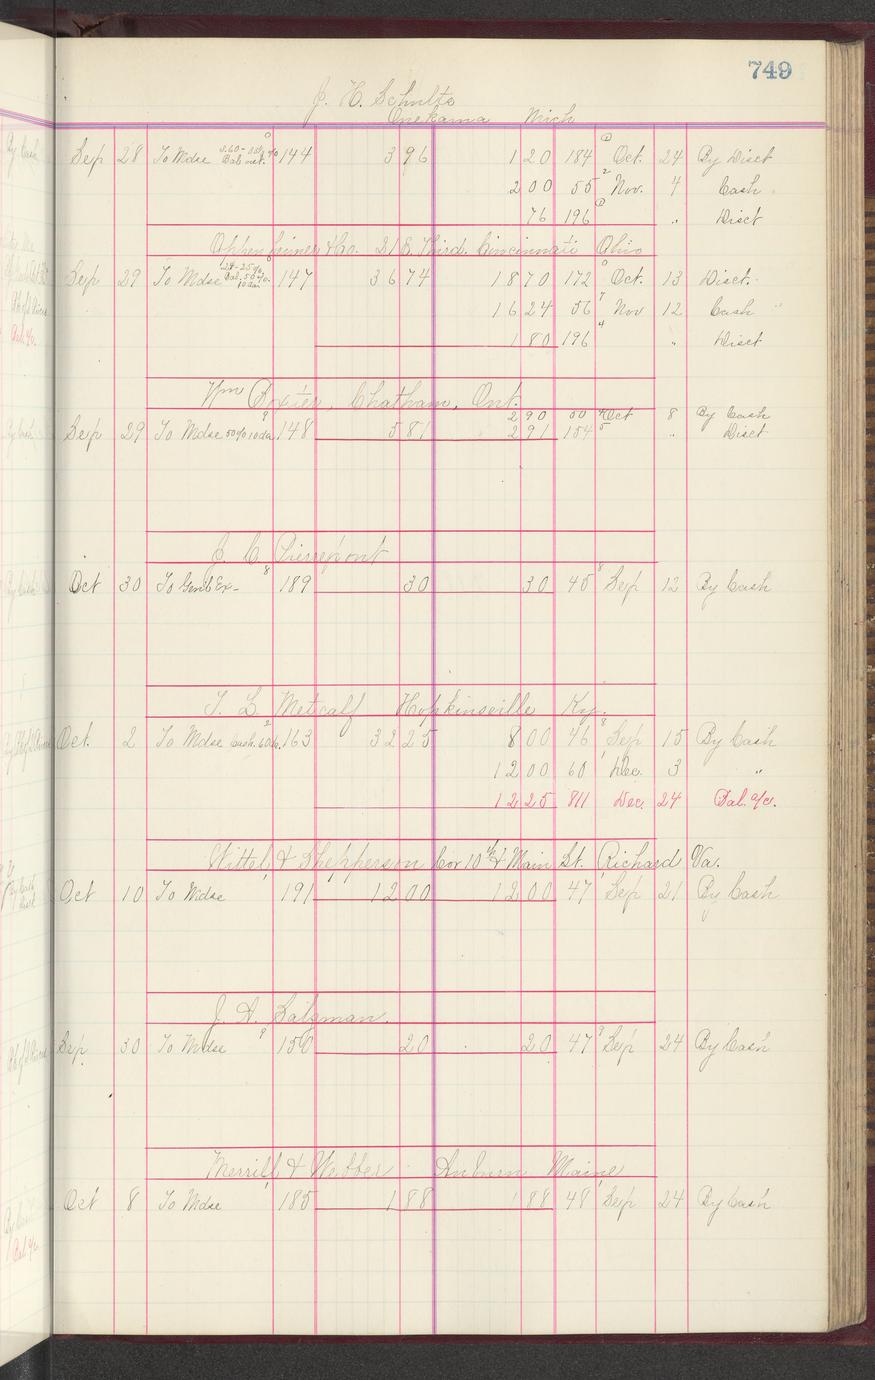 749
J. H. Schults
Onekama Mich
Sep 28 To Mdse 144 3 96 1 20 184 Oct. 24 By Disct
2 00 55 Nov. 4 Cash
76 196 " Disct
& Co. 21 E. Third. Cincinnati Ohio
Sep 29 To Mdse 147 36 74 18 70 172 Oct. 13 Disct.
16 24 56 Nov 12 Cash "
1 80 196 " Disct
Wm Chatham, Ont.
2 90 50 Oct 8 By Cash
Sep 29 To Mdse 50% 10 da 148 5 81 2 91 154 " Disct
J. C. Pierrepont
Oct 30 To Genl Ex- 189 30 30 45 Sep 12 By Cash
T. L. Metcalf Hopkinsville Ky.
Oct. 2 To Mdse Cash. 60 da. 163 32 25 8 00 46 Sep 15 By Cash
12 00 60 Dec. 3 "
12 25 811 Dec. 24 Bal. a/c.
Wittel, & Shepperson Cor 10th & Main St. Richard Va.
Oct 10 To Mdse 191 12 00 12 00 47 Sep 21 By Cash
J. A. Salzman.
Sep 30 To Mdse 150 20 20 47 Sep 24 By Cash
Merrill & Webber Auburn Maine
Oct 8 To Mdse 185 1 88 1 88 48 Sep 24 By Cash